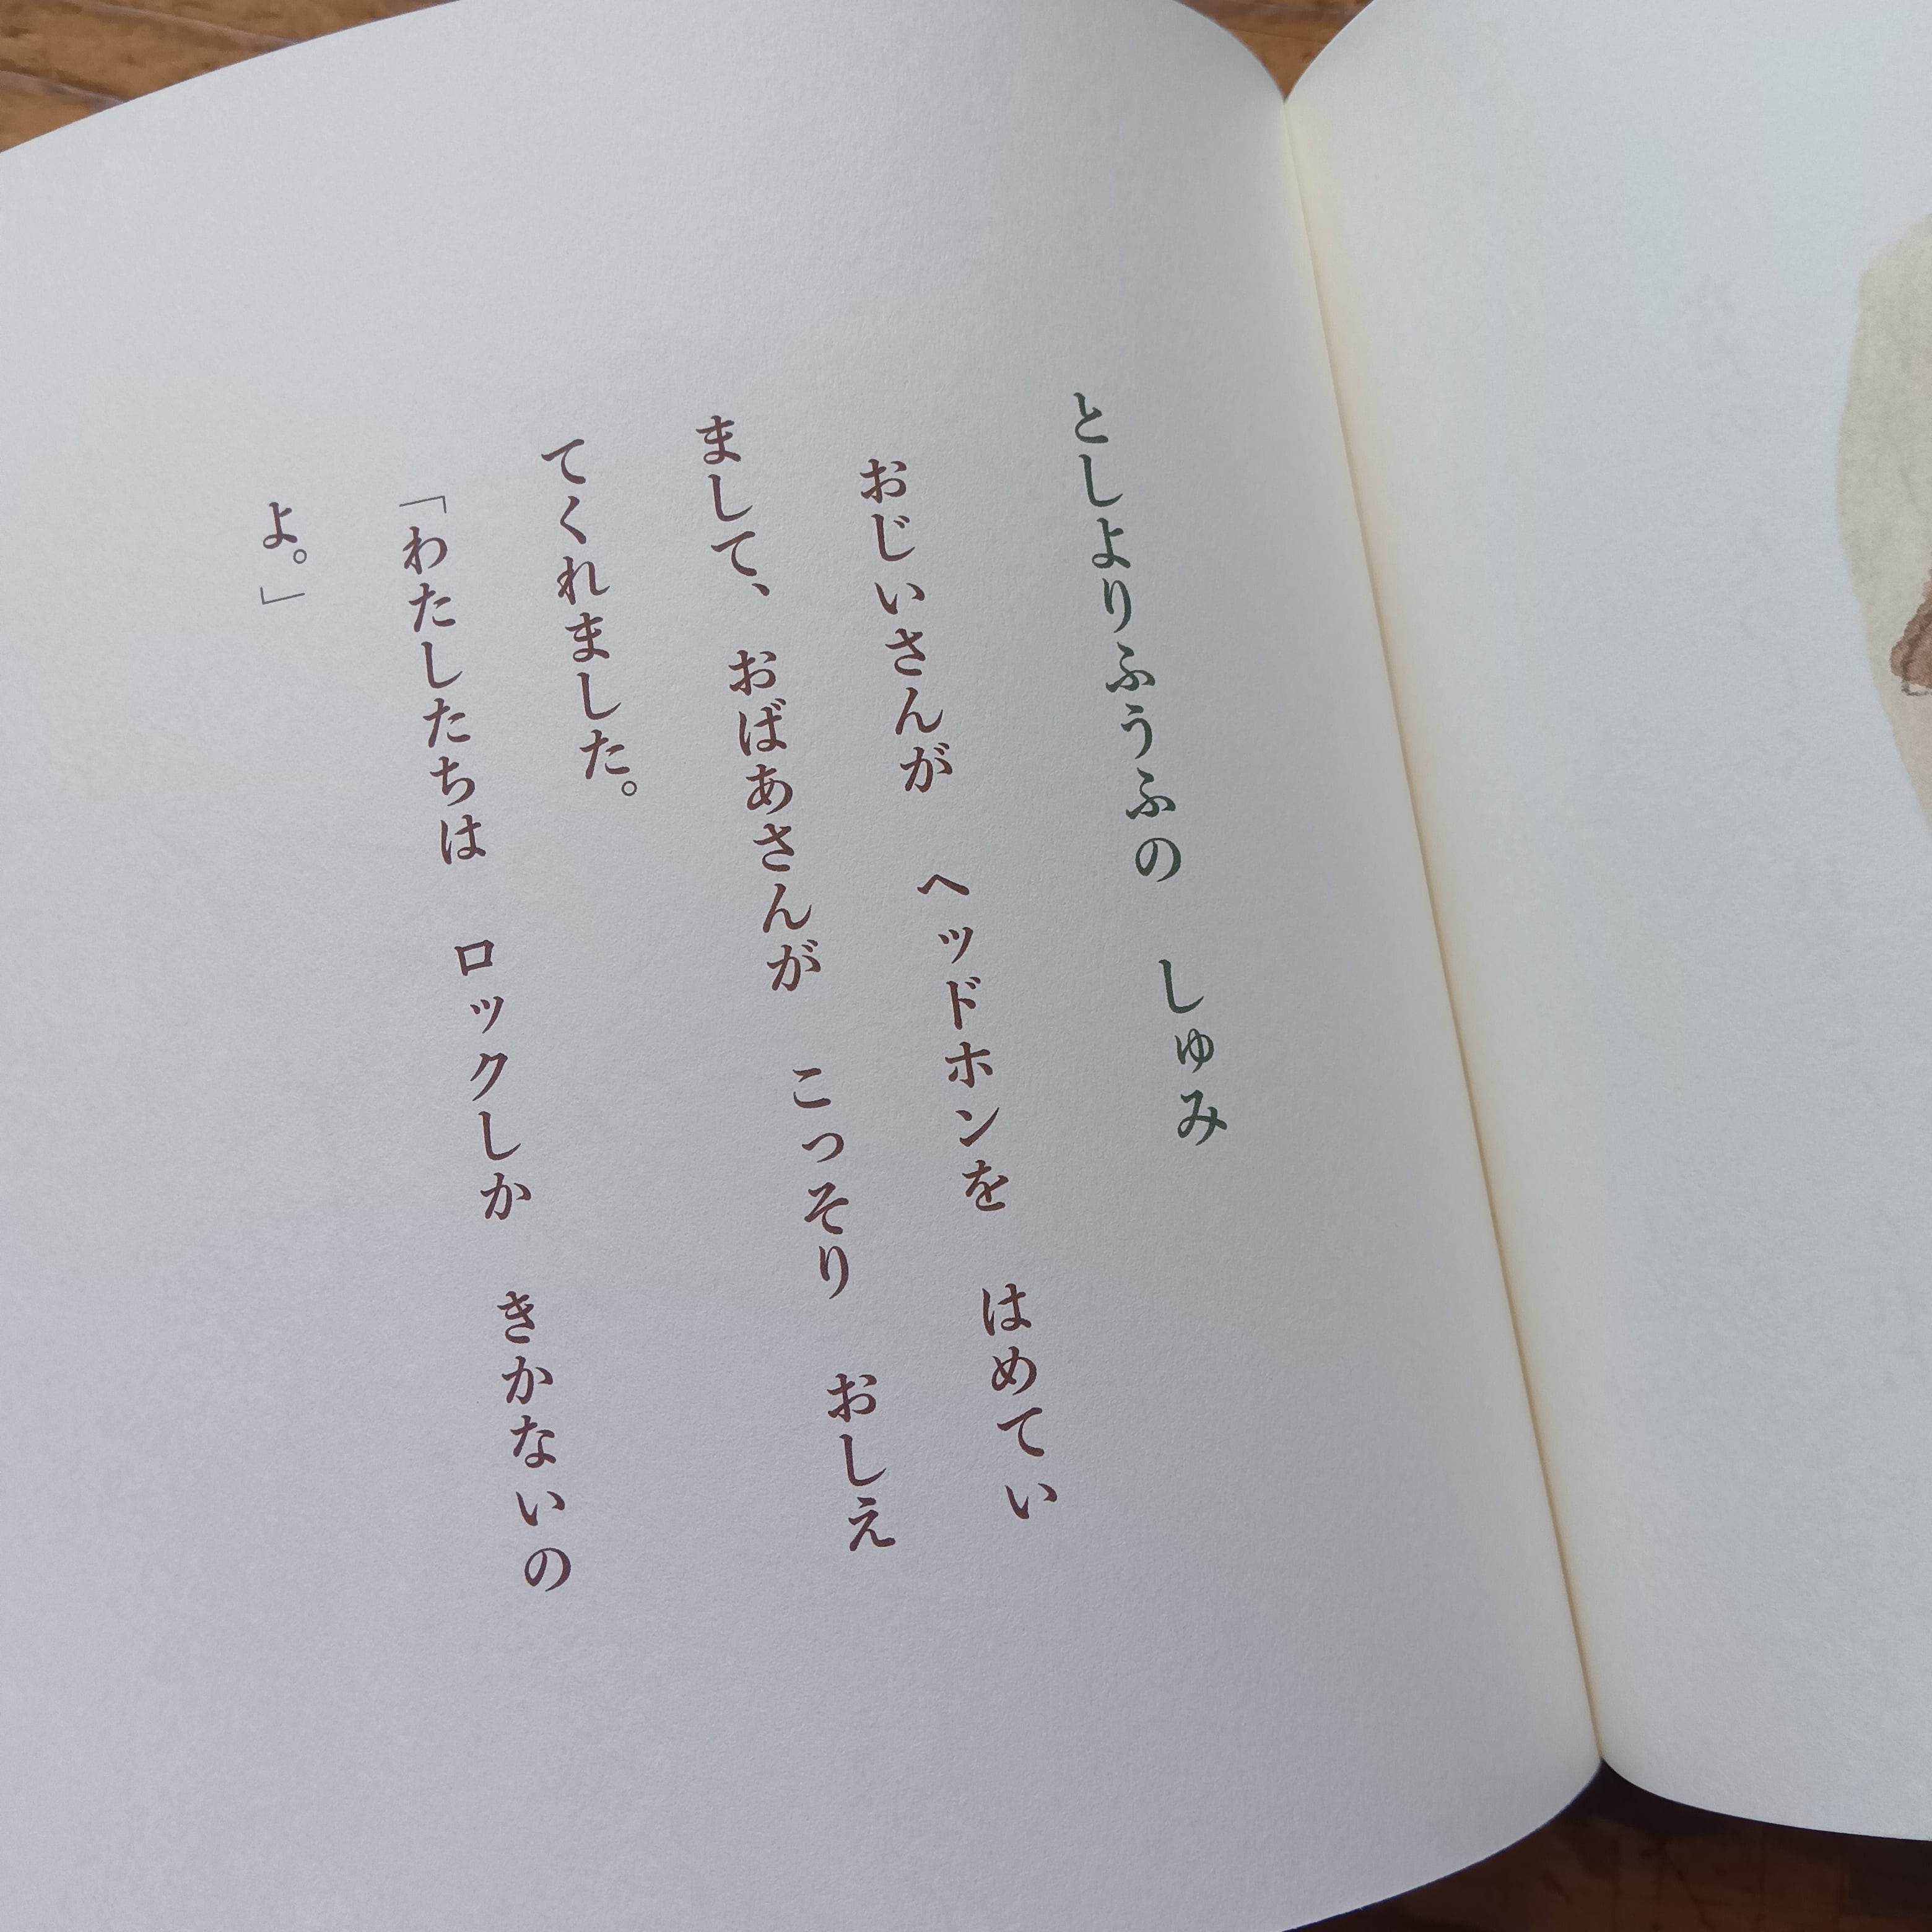 としよりふうふの　しゅみ
おじいさんが　ヘッドホンを　はめてい
まして、おばあさんが　こっそり　おしえ
てくれました。
「わたしたちは　ロックしか　きかないの
よ。」